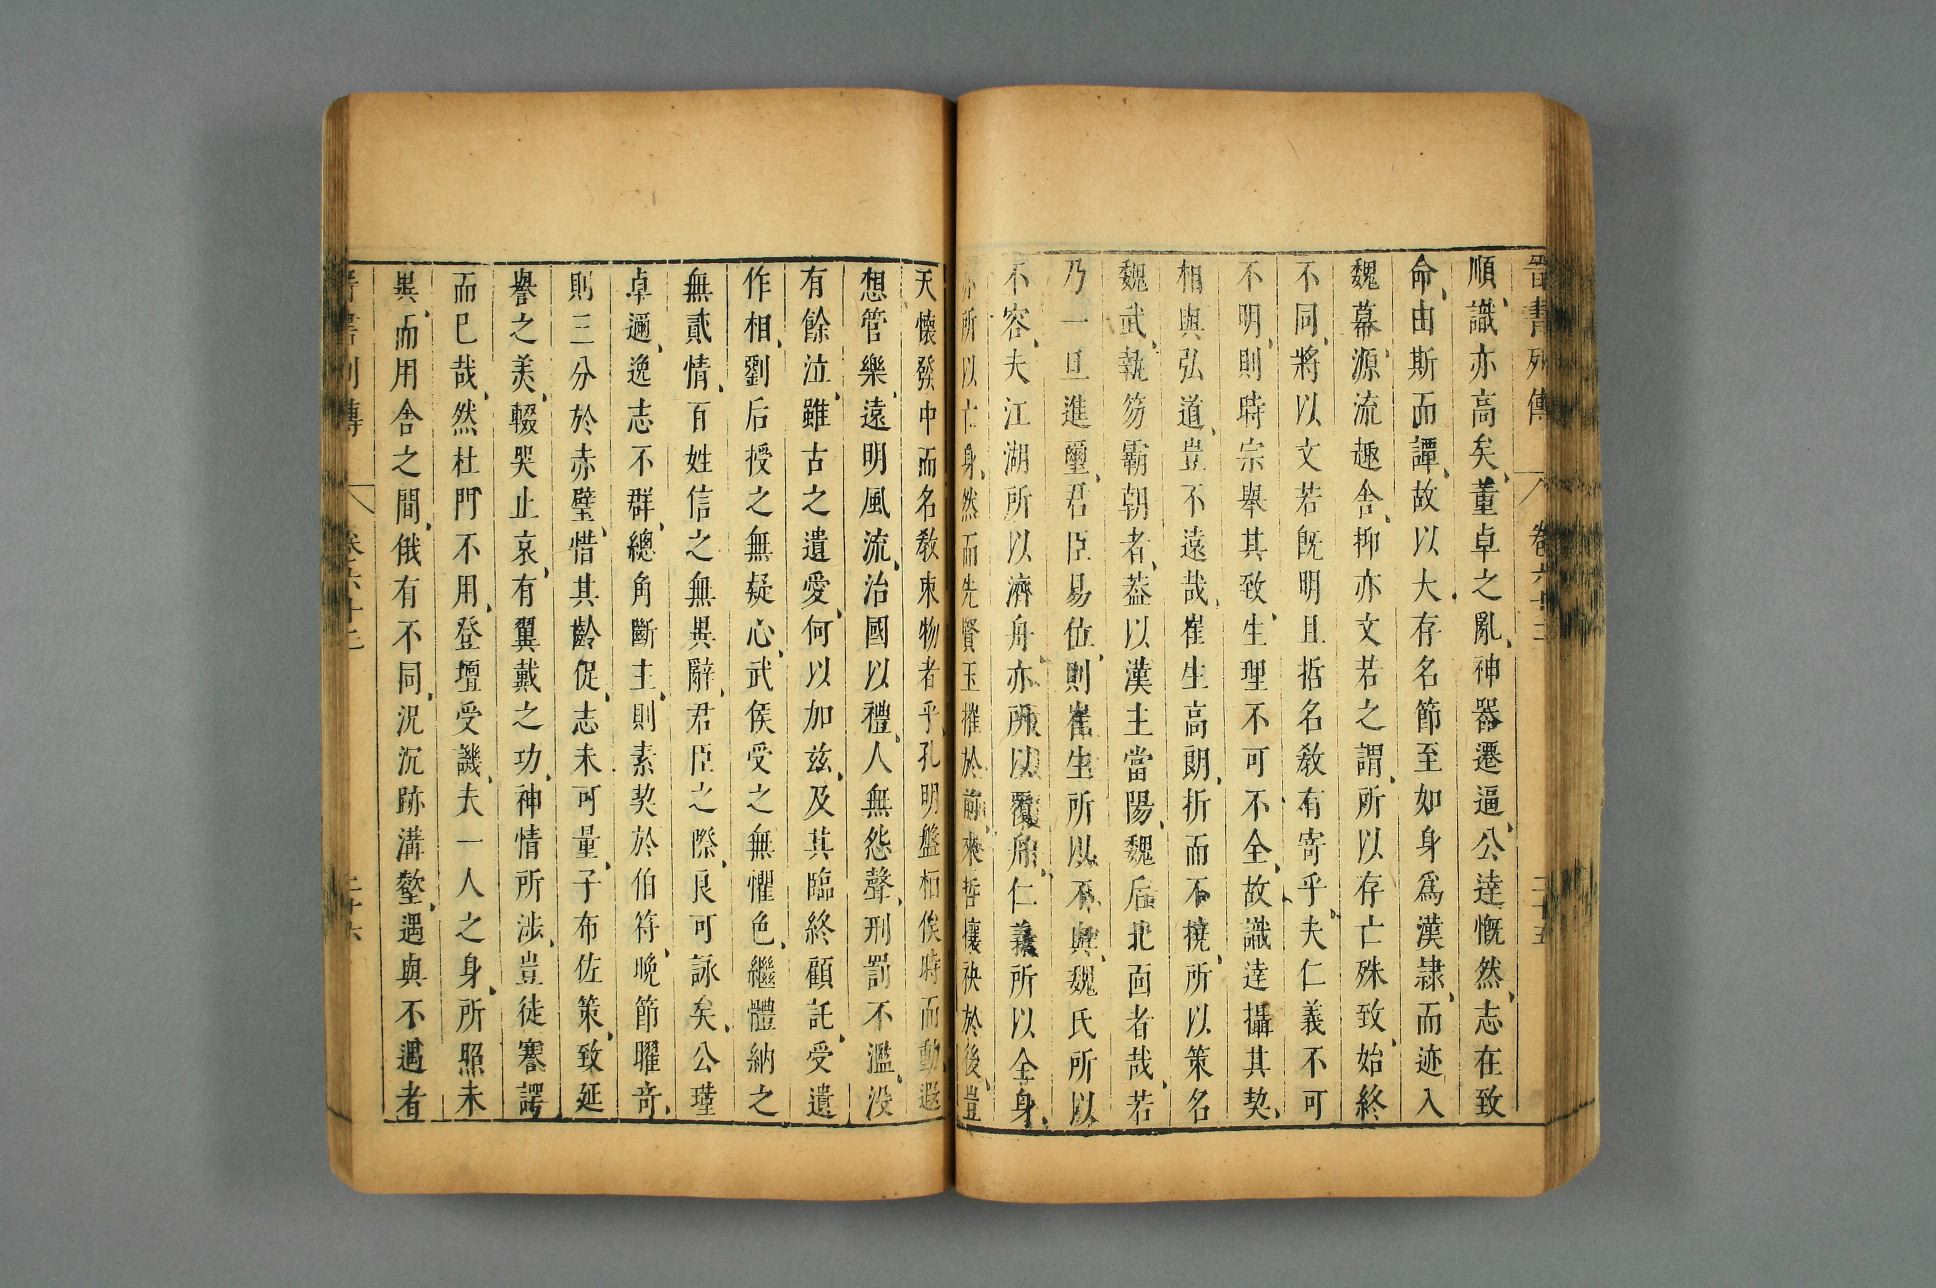 晉書列傳 卷六十二 二十五
順、識亦高矣、董卓之亂、神器遷逼、公達慨然、志在致
命、由斯而譚、故以大存名節、至如身爲漢隷、而迹入
魏幕、源流趣舍、抑亦文若之謂、所以存亡殊致、始終
不同、將以文若旣明且哲、名敎有寄乎、夫仁義不可
不明、則時宗舉其致、生理不可不全、故識達攝其契、
相與弘道、豈不遠哉、崔生高朗、折而不撓、所以策名
魏武、執笏霸朝者、葢以漢主當陽、魏后北面者哉、若
乃一旦進璽、君臣易位、則崔生所以不與、魏氏所以
不容、夫江湖所以濟舟、亦所以覆舟、仁義所以全身、
亦所以亡身、然而先賢玉摧於前、來哲攘袂於後、豈
天懷發中而名敎束物者乎、孔明盤桓俟時而動、遐
想管樂、遠明風流、治國以禮、人無怨聲、刑罰不濫、沒
有餘泣、雖古之遺愛、何以加玆、及其臨終顧託、受遺
作相、劉后授之無疑心、武侯受之無懼色、繼體納之
無貳情、百姓信之無異辭、君臣之際、良可詠矣、公瑾
卓邁、逸志不群、總角斷主、則素契於伯符、晚節曜奇、
則三分於赤壁、惜其齡促、志未可量、子布佐策、致延
譽之美、輟哭止哀、有翼戴之功、神情所涉、豈徒謇諤
而已哉、然杜門不用、登壇受譏、夫一人之身、所照未
異、而用舍之間、俄有不同、況沉跡溝壑、遇與不遇者
晉書列傳 卷六十二 二十六